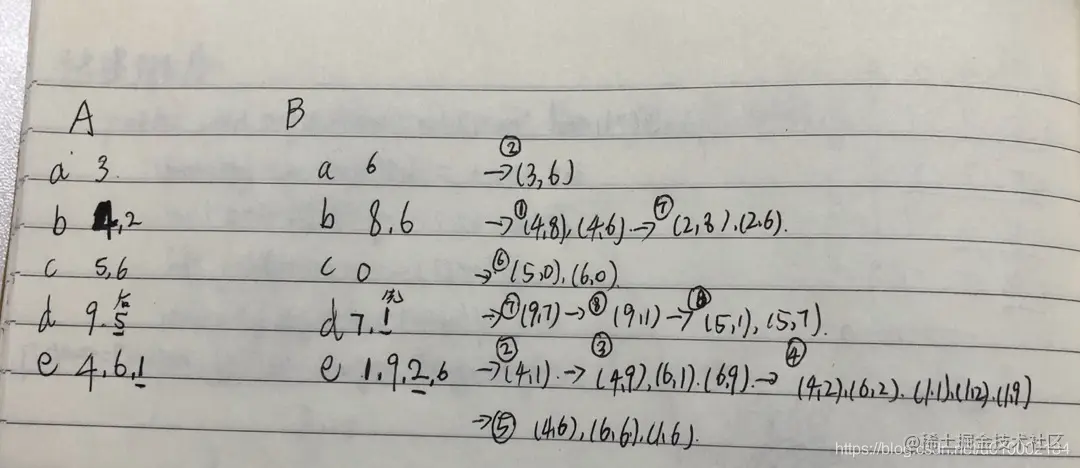 A B
a 3. a 6 ②→(3,6)
b 4,2 b 8,6 →①(4,8),(4,6)→⑦(2,8),(2,6).
c 5,6 c 0 →⑥(5,0),(6,0)
d 9.5 d 7,1 →⑦(9,7)→⑧(9,1)→(5,1),(5,7).
e 4,6,1 e 1,9,2,6 →②(4,1).→③(4,9),(6,1).(6,9).→④(4,2),(6,2).(1,1),(1,2).(1,9)
→⑤(4,6),(6,6),(1,6).
@稀土掘金技术社区